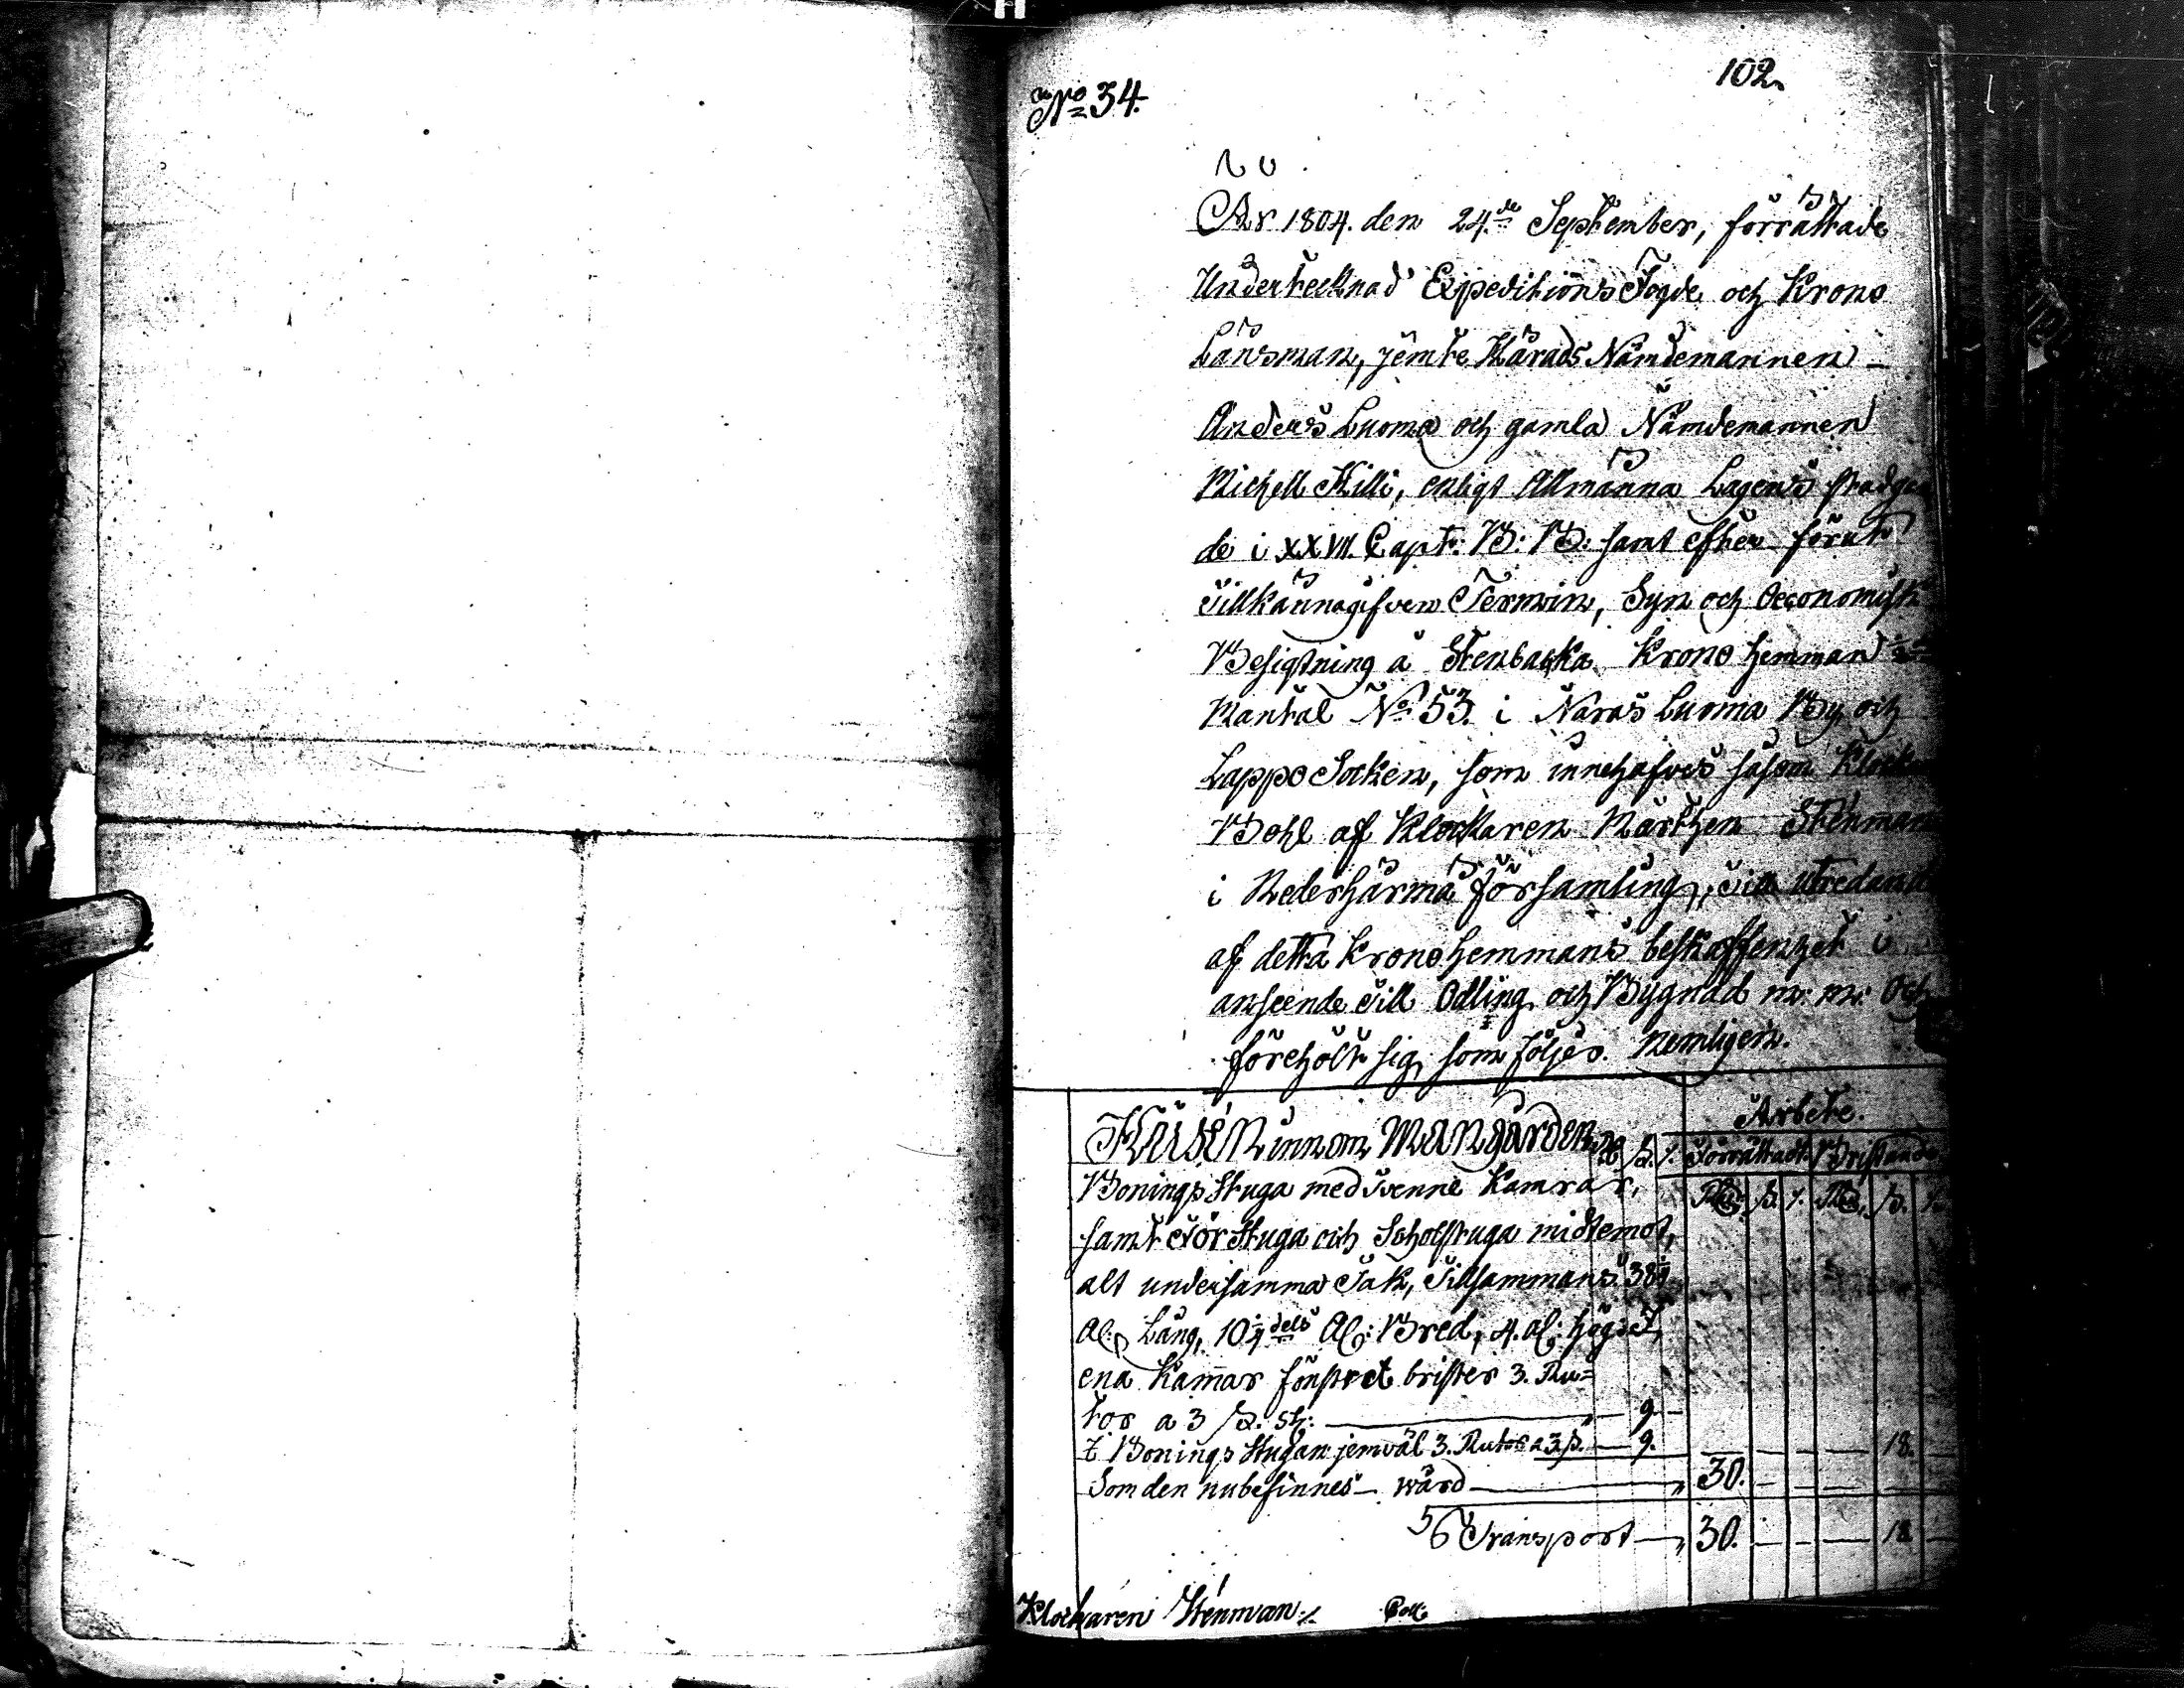 102.
No 34.
År 1804. den 24.de September, förrättade
Undertecknad Expeditions Fogde och Krono
Länsman, jemte Härads Nämdemannen
Anders Luoma och gamla Nämdemannen
Michell Killi, enligt Allmänna Lagens stadgan
de i XXVII. Capt: B: B: samt efter förut
Tillkännagifven Termin, Syn och Oeconomisk
Besigtning å Stenbacka Krono hemman
Mantal No 53. i Naras Luoma By och
Lappo Socken, som innehafves såsom Klockare
Bohl af Klockaren Marthen Stenman
i Nederhärmä församling, till utredande
af detta Krono hemmans beskaffenhet i
anseende till Odling och Bygnad m: m: Och
förehölt sig som följer. Nemligen.
Husen innom Mangården
Rd ß. r.
Arbete.
Förrättadt. Bristande
Rd. ß. r. Rd. ß. r.
Bonings Stuga med tvenne Kamrar,
samt förstuga och Scholstuga midtemot,
alt under samma Tak, Tillsammans
Al: Lång, 10 dels Al: Bred, 4. al: högd,
ena Kammar fönstret brister 3. Ru-
tor a 3 ß. st: 9.
I Bonings Stugan jemväl 3. Rutor a 3 ß. 9. 18.
Som den nu befinnes wärd 30.
Transport 30. 18
Klockaren Stenman